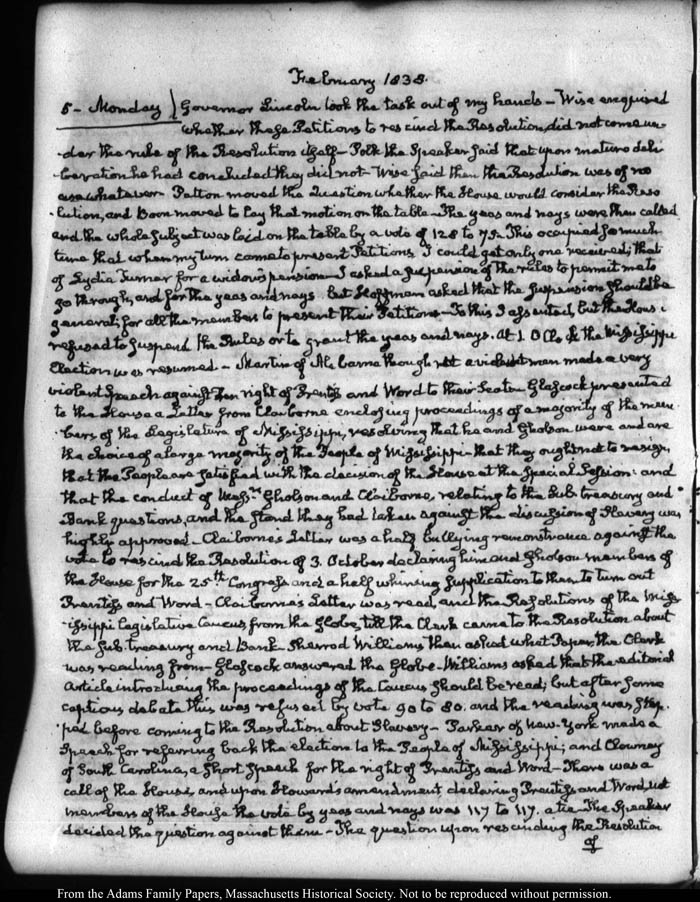 February 1838.
5 – Monday) Governor Lincoln took the task out of my hands – Wise enquired
whether these Petitions to rescind the Resolution, did not come un-
-der the rule of the Resolution itself – Polk the Speaker said that upon mature deli-
-beration he had concluded they did not – Wise said then the Resolution was of no
use whatever. Patton moved the Question whether the House would consider the Reso-
-lution, and Boon moved to lay that motion on the table – The yeas and nays were then called
and the whole subject was laid on the table by a vote of 128 to 75. This occupied so much
time that when my turn came to present Petitions, I could get only one received; that
of Lydia Turner for a widow's pension – I asked a suspension of the rules to permit me to
go through, and for the yeas and nays but Hoffman asked that the suspension should be
general; for all the members to present their Petitions – To this I assented, but the House
refused to suspend the Rules or to grant the yeas and nays. At 1. O Clock the Mississippi
Election was resumed. – Martin of Alabama though not a violent man made a very
violent speech against the right of Prentiss and Word to their Seats. Glascock presented
to the House a Letter from Claiborne enclosing proceedings of a majority of the mem-
-bers of the Legislature of Mississippi, resolving that he and Gholson were and are
the choice of a large majority of the People of Mississippi – that they ought not to resign,
that the People are satisfied with the decision of the House at the Special Session: and
that the conduct of Messrs. Gholson and Claiborne, relating to the Sub treasury and
Bank questions, and the stand they had taken against the discussion of Slavery was
highly approved – Claiborne's Letter was a half bullying remonstrance against the
vote to rescind the Resolution of 3. October declaring him and Gholson members of
the House for the 25th Congress and a half whining supplication to them to turn out
Prentiss and Word – Claiborne's Letter was read, and the Resolutions of the Miss-
-issippi Legislative Caucus, from the Globe, till the Clerk came to the Resolution about
the Sub. treasury and Bank – Sherrod Williams then asked what Paper the Clerk
was reading from – Glascock answered the Globe – Williams asked that the editorial
article introducing the proceedings of the Caucus should be read; but after some
captious debate this was refused by vote 90 to 80. and the reading was stop-
-ped before coming to the Resolution about Slavery – Parker of New-York made a
speech for referring back the election to the People of Mississippi; and Clowney
of South Carolina, a short speech for the right of Prentiss and Word – There was a
call of the House, and upon Howard's amendment declaring Prentiss and Word, not
members of the House the vote by yeas and nays was 117 to 117. a tie. The Speaker
decided the question against them – The question upon rescinding the Resolution
of
From the Adams Family Papers, Massachusetts Historical Society. Not to be reproduced without permission.